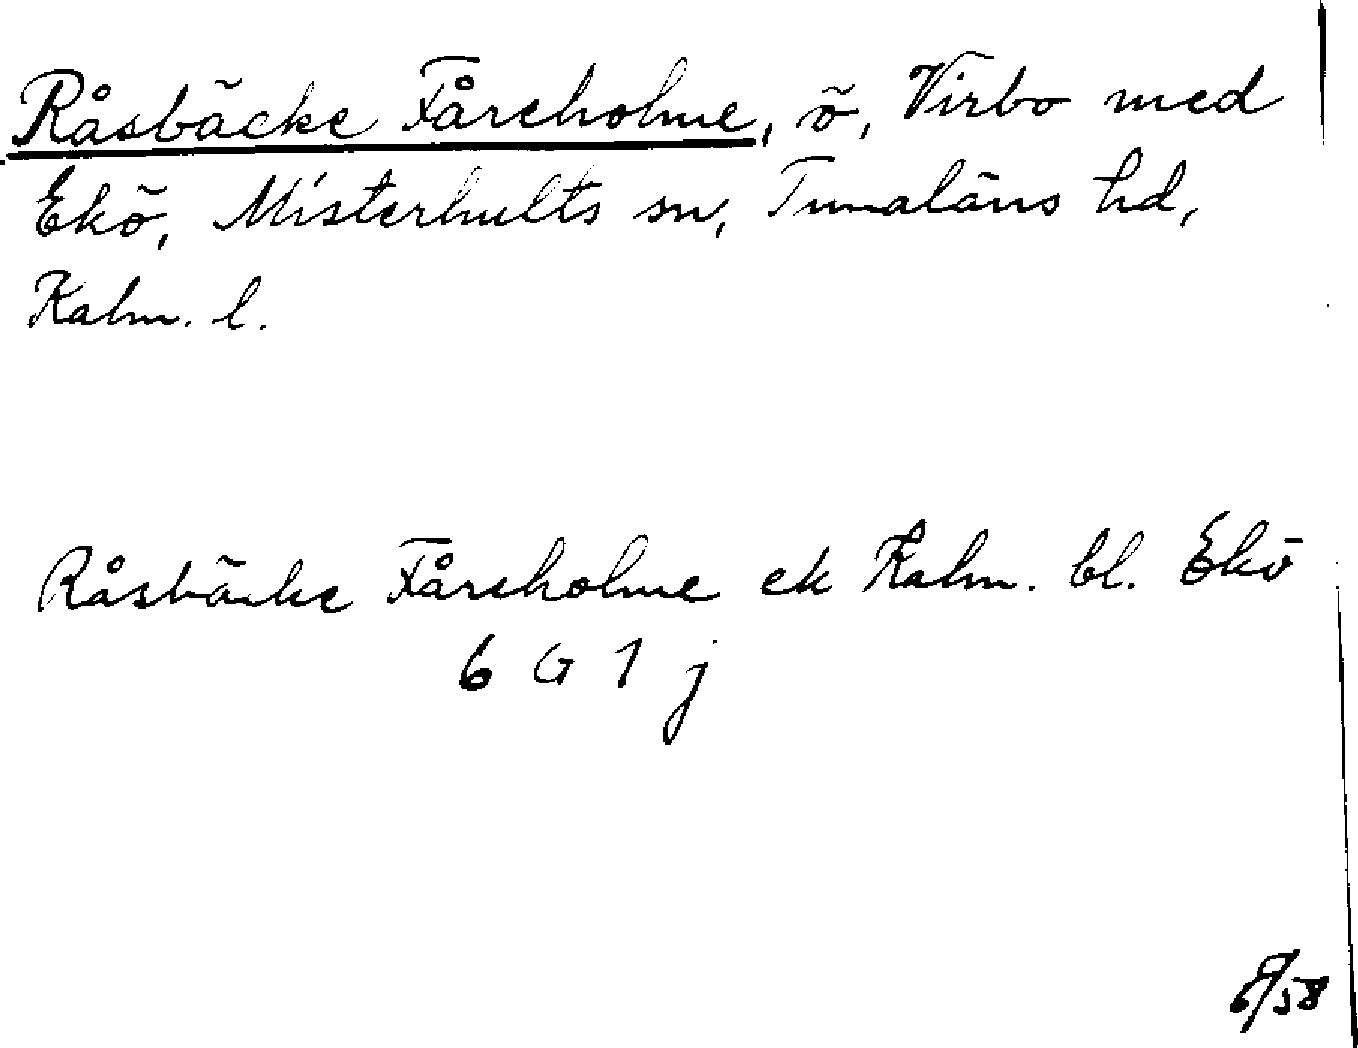 Råsbäcke Fåreholme, ö, Virbo med
Ekö, Misterhults sn, Tunaläns hd,
Kalm. l.
Råsbäcke Fåreholme ek Kalm. bl. Ekö
6 G 1 j